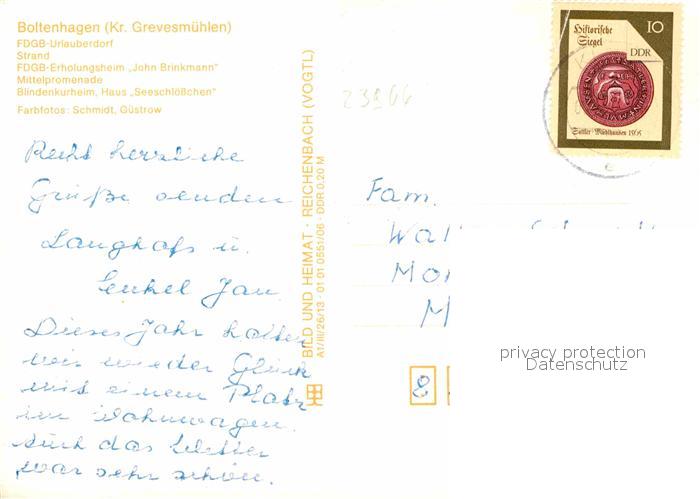 Boltenhagen (Kr. Grevesmühlen)
FDGB-Urlauberdorf
Strand
FDGB-Erholungsheim „John Brinkmann"
Mittelpromenade
Blindenkurheim, Haus „Seeschlößchen"
Farbfotos: Schmidt, Güstrow
Recht herzliche
Grüße senden
Langhafs u.
Enkel Jan
Dieses Jahr hatten
wir wieder Glück
mit einem Platz
im Wohnwagen.
Auch das Wetter
war sehr schön.
BILD UND HEIMAT · REICHENBACH (VOGTL)
A1/III/26/13 · 01 01 0551/06 · DDR 0,20 M
23966
Historische
Siegel
10
DDR
Sattler · Mühlhausen 1565
Fam.
Wal
Mo
M
8
privacy protection
Datenschutz